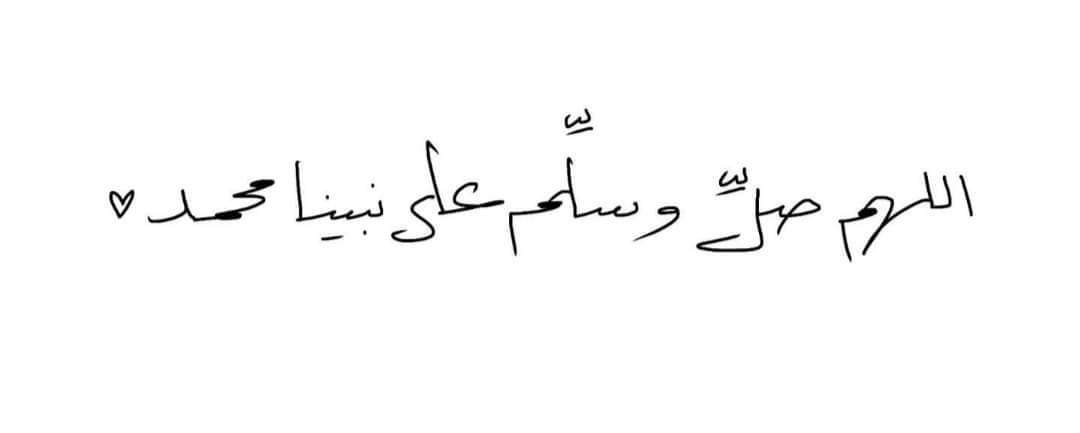 اللهم صلِّ وسلِّم على نبينا محمد ♡